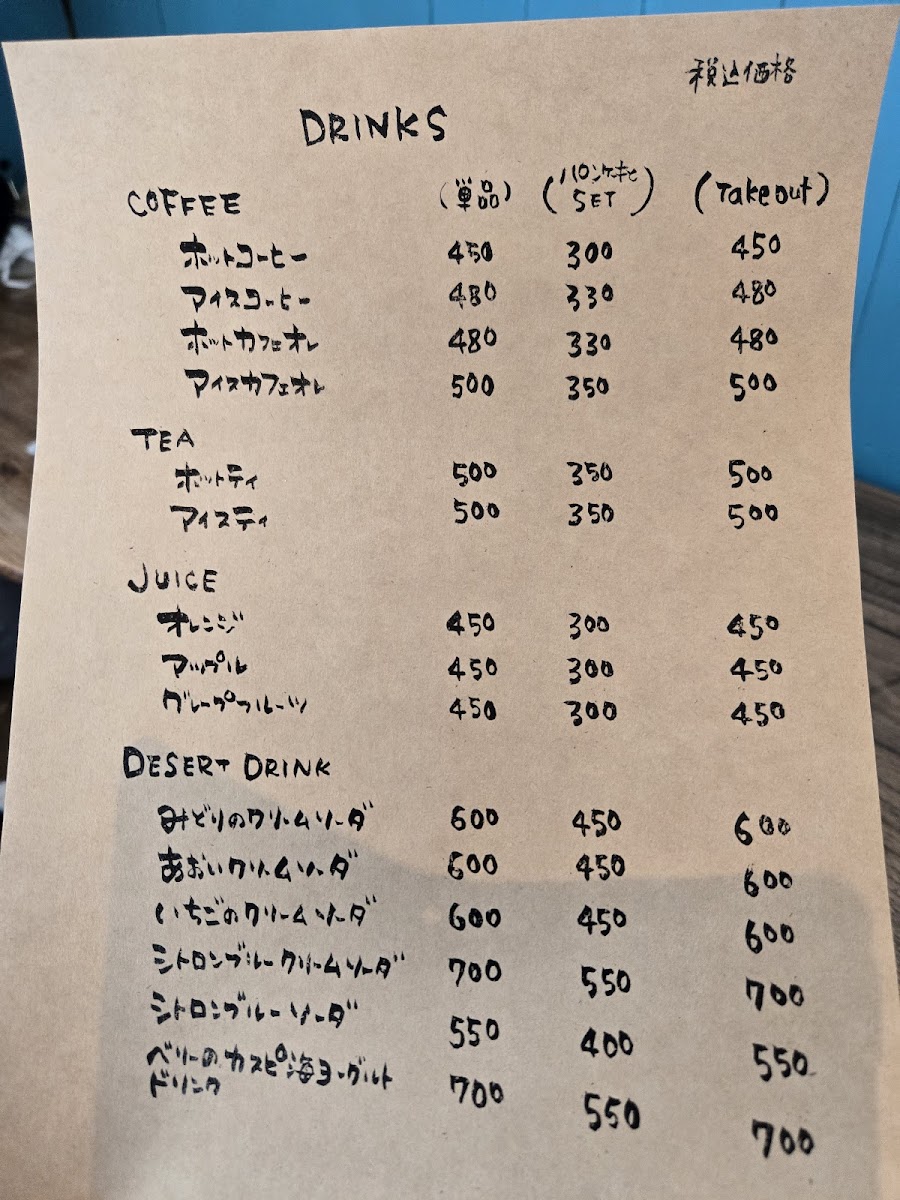 税込価格
DRINKS
COFFEE (単品) (パンケーキと SET) (Take out)
ホットコーヒー 450 300 450
アイスコーヒー 480 330 480
ホットカフェオレ 480 330 480
アイスカフェオレ 500 350 500
TEA
ホットティ 500 350 500
アイスティ 500 350 500
JUICE
オレンジ 450 300 450
アップル 450 300 450
グレープフルーツ 450 300 450
DESERT DRINK
みどりのクリームソーダ 600 450 600
あおいクリームソーダ 600 450 600
いちごのクリームソーダ 600 450 600
シトロンブルークリームソーダ 700 550 700
シトロンブルーソーダ 550 400 550
ベリーのカスピ海ヨーグルト
ドリンク 700 550 700